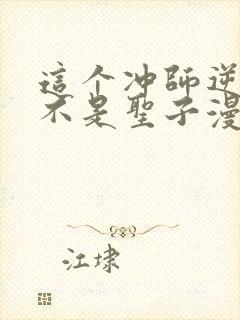 這个冲師逆
不是聖子漫
江埭